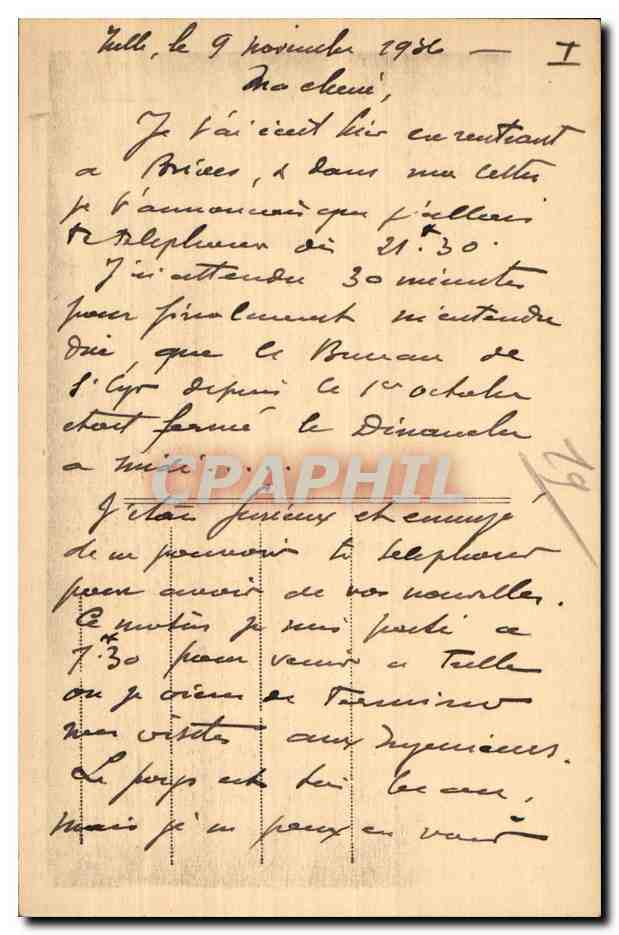 Tulle, le 9 novembre 1936 — I
Ma chérie,
Je t'ai écrit hier en rentrant
a Brives, & dans ma lettre
je t'annonçais que j'allais
te téléphoner dès 21h30.
J'ai attendu 30 minutes
pour finalement m'entendre
dire, que le Bureau de
St Cyr depuis le 1er octobre
était fermé le Dimanche
a midi.....
CPAPHIL
J'étais furieux et ennuyé
de ne pouvoir te téléphoner
pour avoir de vos nouvelles.
Ce matin je suis parti a
7h30 pour venir a Tulle
ou je viens de terminer
mes visites aux Ingénieurs.
Le pays est très beau,
mais je ne peux en voir
19